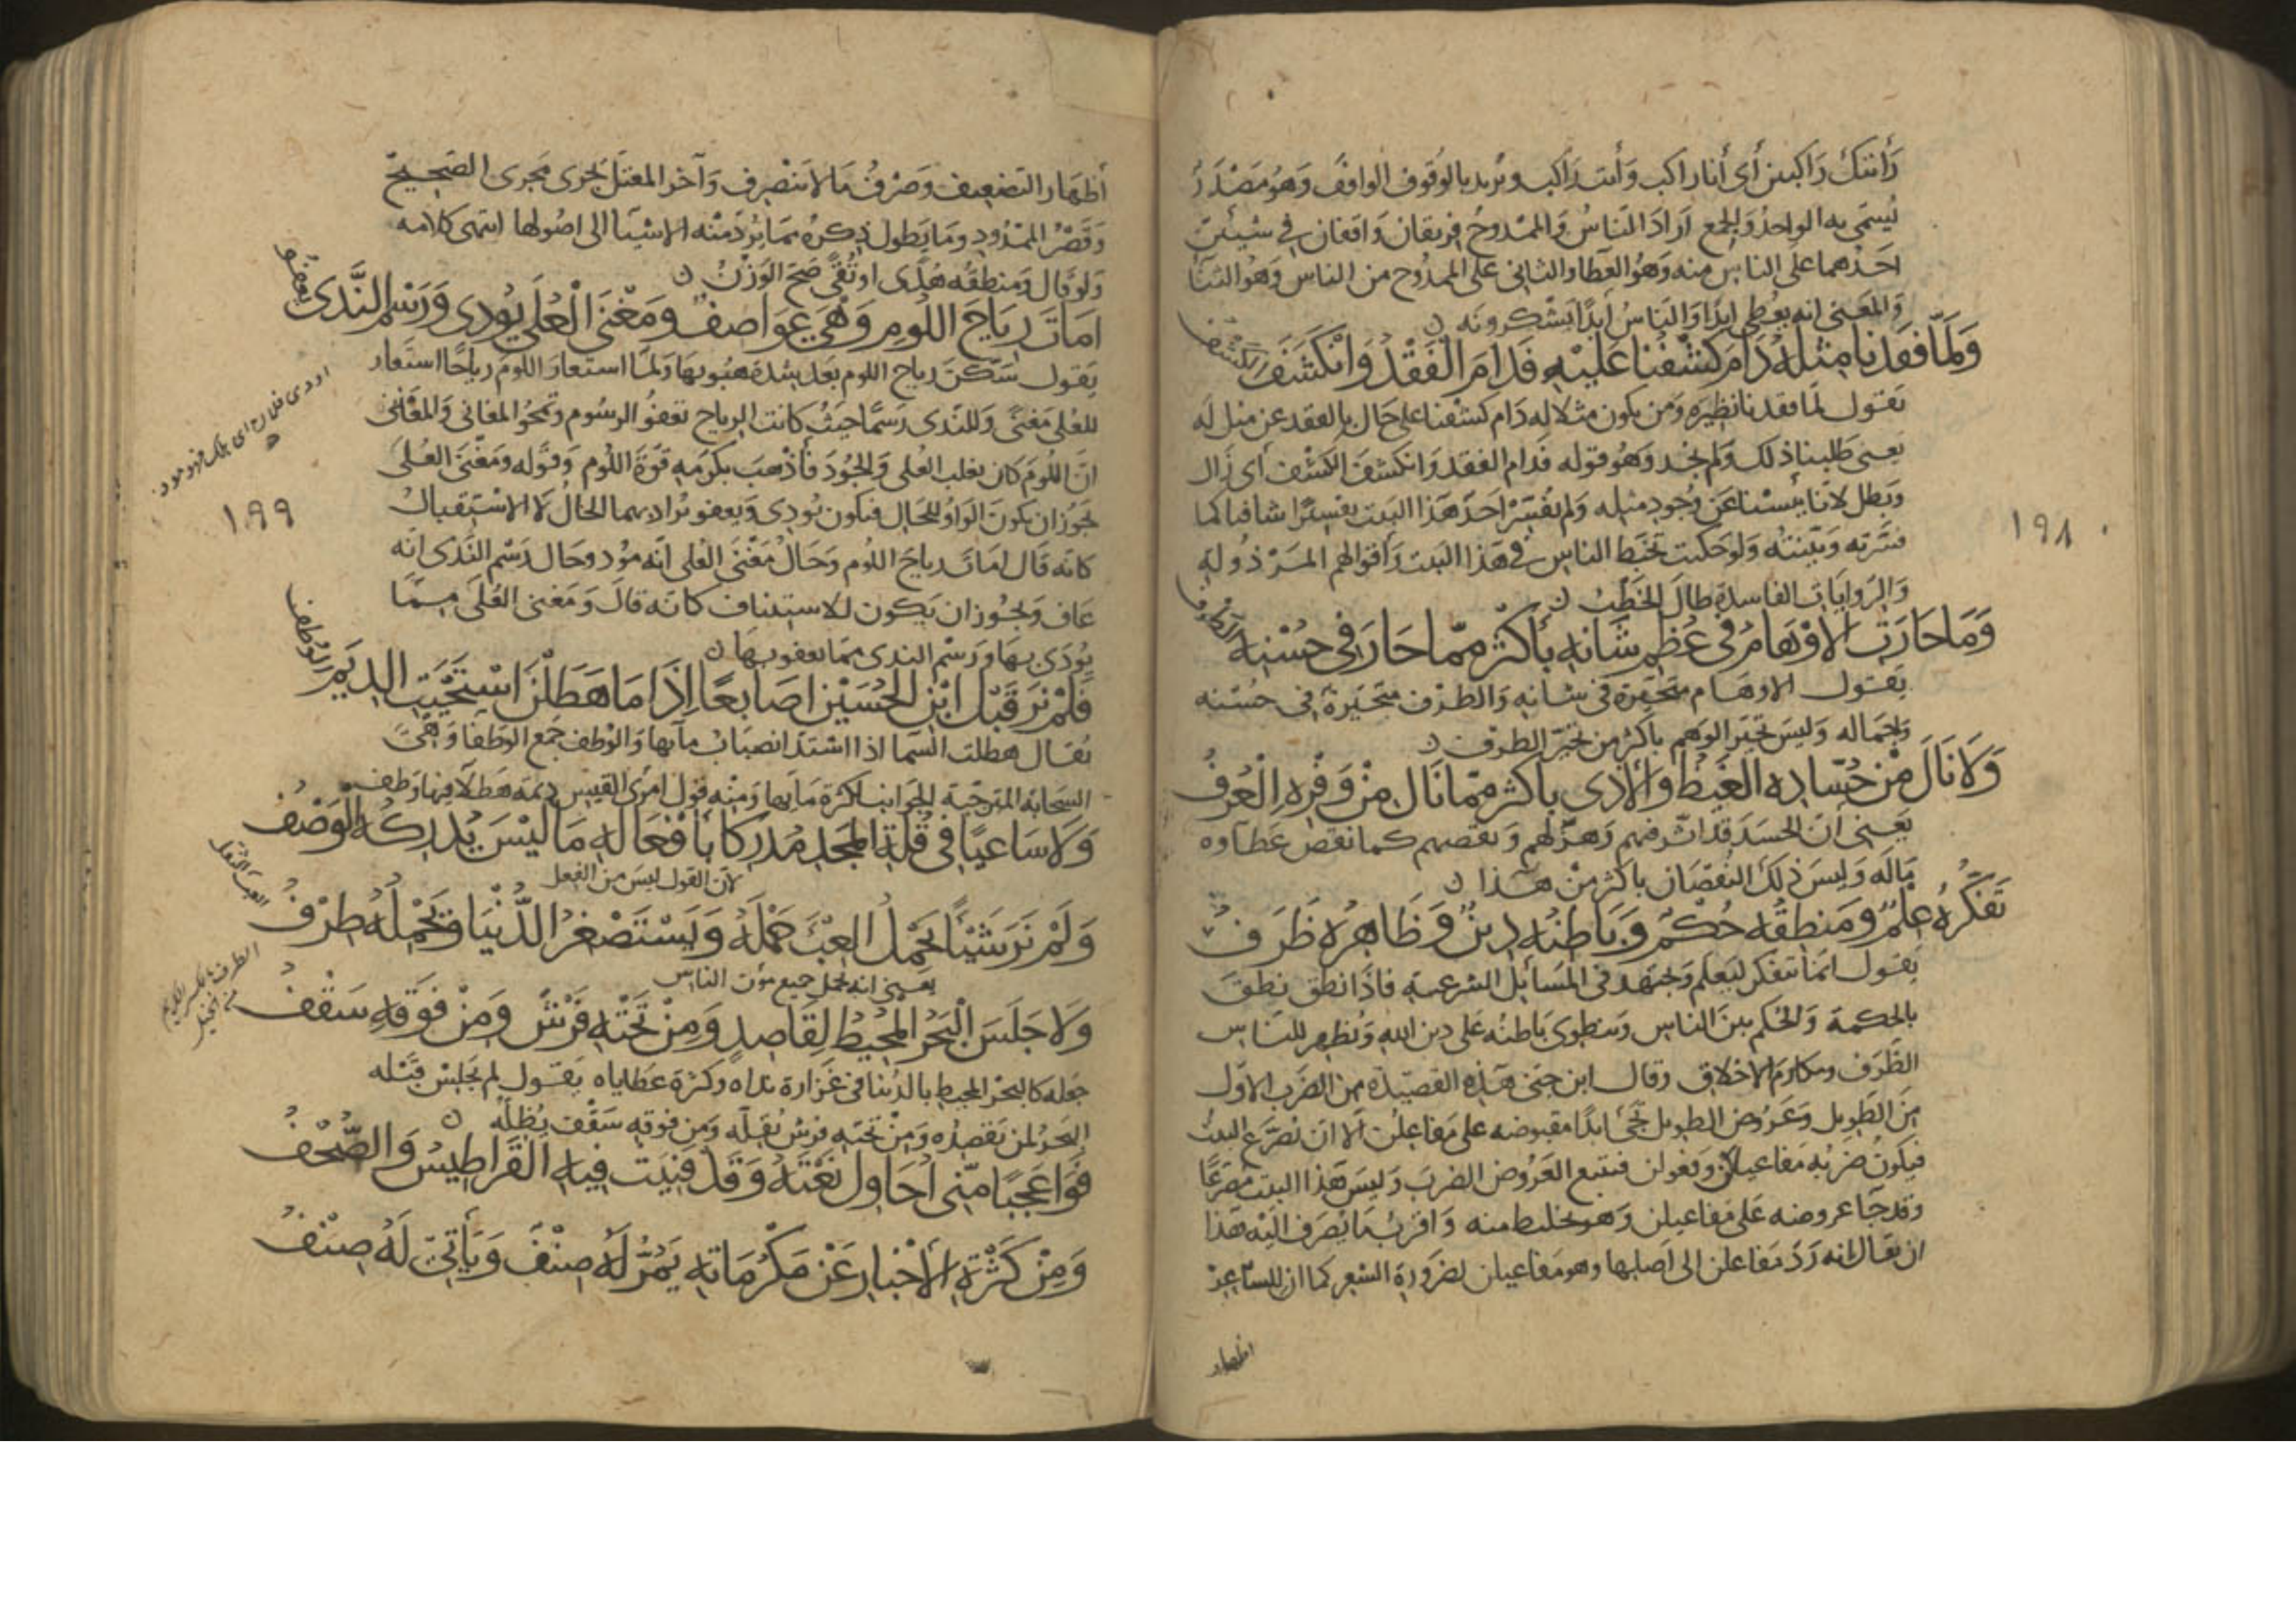 رأيتك راكبين أي أنا راكب وأنت راكب ويريد بالوقوف الواقف وهو مصدر
يسمى به الواحد والجمع أراد الناس والممدوح فريقان واقفان في شيئين
احدهما على الناس منه وهو العطا والثاني على الممدوح من الناس وهو الثنا
والمعنى انه يعطي ابدًا والناس أبدًا يشكرونه
وَلَمَّا فَقَدْنَا مِثْلَهُ دَامَ كَشْفُنَا عَلَيْهِ فَدَامَ الْفَقْدُ وَانْكَشَفَ الكشف
يقول لما فقدنا نظيره ومن يكون مثلا له دام كشفنا على حال بالفقد عن مثل له
يعنى طلبنا ذلك ولم نجد وهو قوله فدام الفقد وانكشف الكشف أي زال
وبطل لانا يئسنا عن وجود مثله ولم يفسر احد هذا البيت تفسيرًا شافيا كما
فسرته وبينته ولو حكيت تخبط الناس في هذا البيت واقوالهم المرذولة
والروايات الفاسدة طال الخطب
وَمَا حَارَتِ الاوْهَامُ فِي عُظْمِ شَانِهِ بأكْثَرَ مِمّا حَارَ فِي حُسْنِهِ الطرف
يقول الاوهام متحيرة في شانه والطرف متحيرة في حسنه
وجماله وليس تحير الوهم باكثر من تحير الطرف
وَلَا نَالَ مِنْ حُسّادِهِ الغَيْظُ وَالأذى بأكثر مِمّا نَالَ مِنْ وَفْرِهِ الْعُرْفُ
يعني ان الحسد قد اثر فيهم وهزلهم ونقصهم كما نقص عطاوه
ماله وليس ذلك النقصان باكثر من هذا
تَفَكُّرُهُ عِلْمٌ وَمَنطِقُه حُكْمٌ وَبَاطِنُهُ دِينٌ وَظَاهِرُهُ ظَرفُ
يقول انما تفكر ليعلم ويجتهد في المسائل الشرعية فاذا نطق نطق
بالحكمة والحكم بين الناس وينطوى باطنه على دين الله ويظهر للناس
الظرف ومكارم الاخلاق وقال ابن جني هذه القصيدة من الضرب الاول
من الطويل وعروض الطويل تجئ ابدًا مقبوضه على مفاعلن الا ان يصرع البيت
فيكون ضربه مفاعيلن او فعولن فيتبع العروض الضرب وليس هذا البيت مصرعًا
وقد جا عروضه على مفاعيلن وهو تخليط منه واقرب ما يصرف اليه هذا
ان يقال انه رد مفاعلن الى اصلها وهو مفاعيلن لضرورة الشعر كما ان للشاعر
اظهار
١٩٨
أظهار التضعيف وصرف ما لا ينصرف وآخر المعتل يجرى مجرى الصحيح
وقصر الممدود وما يطول ذكره مما يرد منه الاشيا الى اصولها انتهى كلامه
ولو قال ومنطقه هدى او تقى صح الوزن
امَاتَ رِيَاحَ اللُّومِ وَهْيَ عَوَاصِفٌ وَمَغْنَى الْعُلَى يُودِى وَرَسْمُ النَّدَى يعفو
يقول سكن رياح اللوم بعد شدة هبوبها ولما استعار اللوم رياحًا استعار
للعلى مغنى وللندى رسمًا حيث كانت الرياح تعفو الرسوم وتمحو المغاني والمعنى
ان اللوم كان يغلب العلى والجود فأذهب بكرمه قوة اللوم وقوله ومغنى العلى
يجوز ان يكون الواو للحال فيكون يودى ويعفو يراد بهما الحال لا الاستقبال
كانه قال امات رياح اللوم وحال مغنى العلى انه مود وحال رسم الندى انه
عاف ويجوز ان يكون للاستيناف كانه قال ومغنى العلى مما
يودى بها ورسم الندى مما يعفو بها
فَلَمْ نَرَ قَبْلَ ابْنِ الحُسَيْنِ اصَابِعًا إذَا مَا هَطَلْنَ اسْتَحْيَتِ الدِيَمُ الوُطف
يقال هطلت السما اذا اشتد انصباب مآئها والوطف جمع الوطفا وهي
السحابة المسترخية الجوانب لكثرة مآئها ومنه قول امرئ القيس ديمة هطلآ فيها وطف
وَلَا سَاعِيًا فِي قُلّةِ المَجْدِ مُدْرِكًا بأفْعَالِهِ مَا لَيْسَ يُدْرِكُهُ الْوَصْفُ
لان القول ليس من الفعل
وَلَمْ نَرَ شَيْئًا يَحْمِلُ العِبْءَ حَمْلَهُ وَيَسْتَصْغِرُ الدُّنْيَا وَيَحْمِلُهُ طِرْفُ
يعني انه يحمل جميع مؤن الناس
وَلَا جَلَسَ الْبَحْرُ المُحِيطُ لِقَاصِدٍ وَمِنْ تَحْتِهِ فَرْشٌ وَمِنْ فَوْقِهِ سَقْفُ
جعله كالبحر المحيط بالدنيا في غزارة نداه وكثرة عطاياه يقول لم يجلس قبله
البحر لمن يقصده ومن تحته فرش يقله ومن فوقه سقف يظله
فَوَا عَجَبًا مِنّى أُحَاوِلُ نَعْتَهُ وَقَدْ فَنِيَت فِيهِ الْقَرَاطِيسُ وَالصُّحْفُ
وَمِنْ كَثْرَةِ الأَخْبَارِ عَنْ مَكْرُمَاتِهِ يَمُرُّ لَهُ صِنْفٌ وَيَأتِي لَهُ صِنْفُ
اودى فلان اى هلك فهو مود
١٩٩
العبء الثقل
الطرف بالكسر الكريم
من الخيل